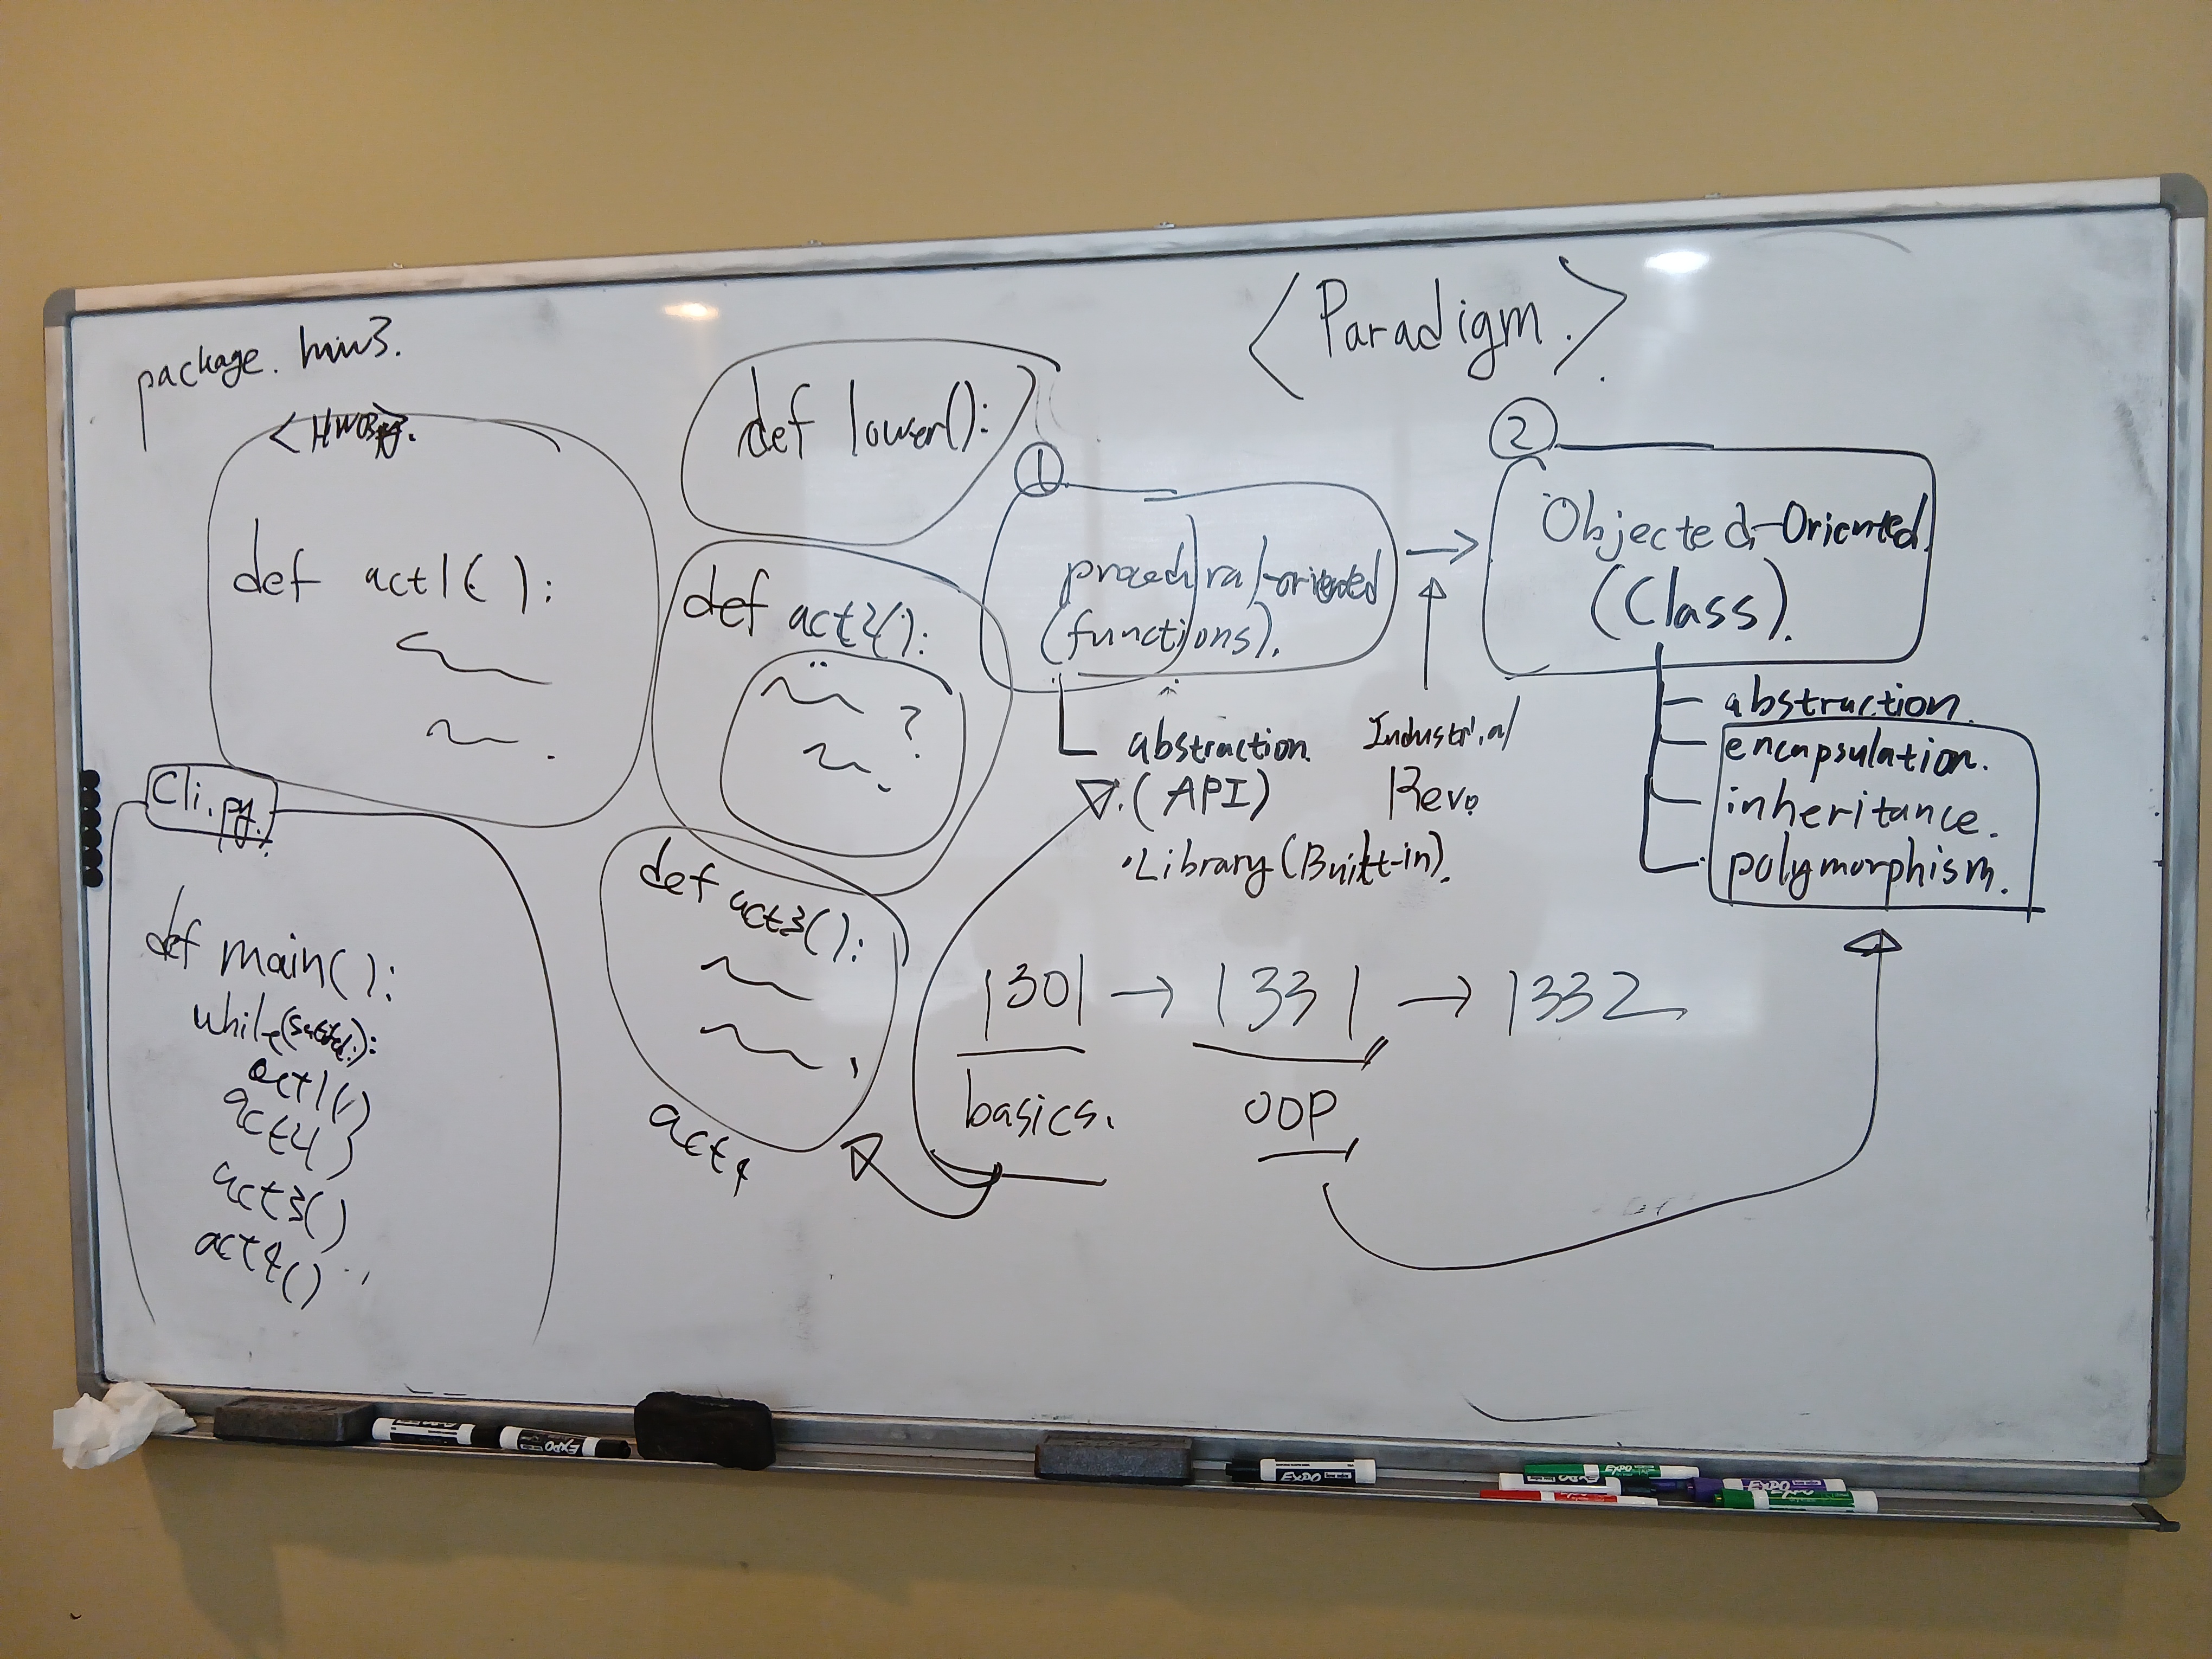 package. hw3.
<HW03.py>.
def act1( ):
Cli.py.
def main( ):
while( ):
act1( )
act2( )
act3( )
act4( )
def lower():
def act2():
?
def act3():
act4
<Paradigm.>
1
procedural-oriented
(functions).
abstraction.
(API)
·Library (Built-in).
Industrial
Rev.
2
Objected-Oriented.
(Class).
abstraction.
encapsulation.
inheritance.
polymorphism.
1301 → 1331 → 1332
basics. OOP
EXPO
EXPO
EXPO
EXPO